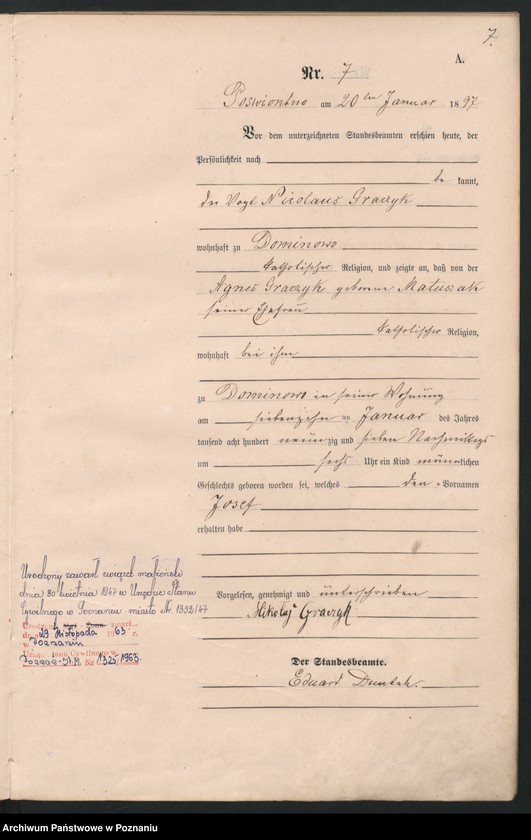 7.
A.
Nr. 7
Poswiontno am 20ten Januar 1897
Vor dem unterzeichneten Standesbeamten erschien heute, der
Persönlichkeit nach
be kannt,
der Vogt Nicolaus Graczyk
wohnhaft zu Dominowo
katholischer Religion, und zeigte an, daß von der
Agnes Graczyk geborene Matuszak
seiner Ehefrau
katholischer Religion,
wohnhaft bei ihm
zu Dominowo in seiner Wohnung
am siebenzehn ten Januar des Jahres
tausend acht hundert neunzig und sieben Nachmittags
um sechs Uhr ein Kind männlichen
Geschlechts geboren worden sei, welches den Vornamen
Josef
erhalten habe
Vorgelesen, genehmigt und unterschrieben
Mikołaj Graczyk
Der Standesbeamte.
Eduard
Urodzony zawarł związek małżeński
dnia 30 kwietnia 1947 w Urzędzie Stanu
Cywilnego w Poznaniu-miasto Nr 1332/47
zmarł
dnia 29 listopada 1963 r.
w Poznaniu
Urząd Stanu Cywilnego w
Nr 1325/1963.
Archiwum Państwowe w Poznaniu